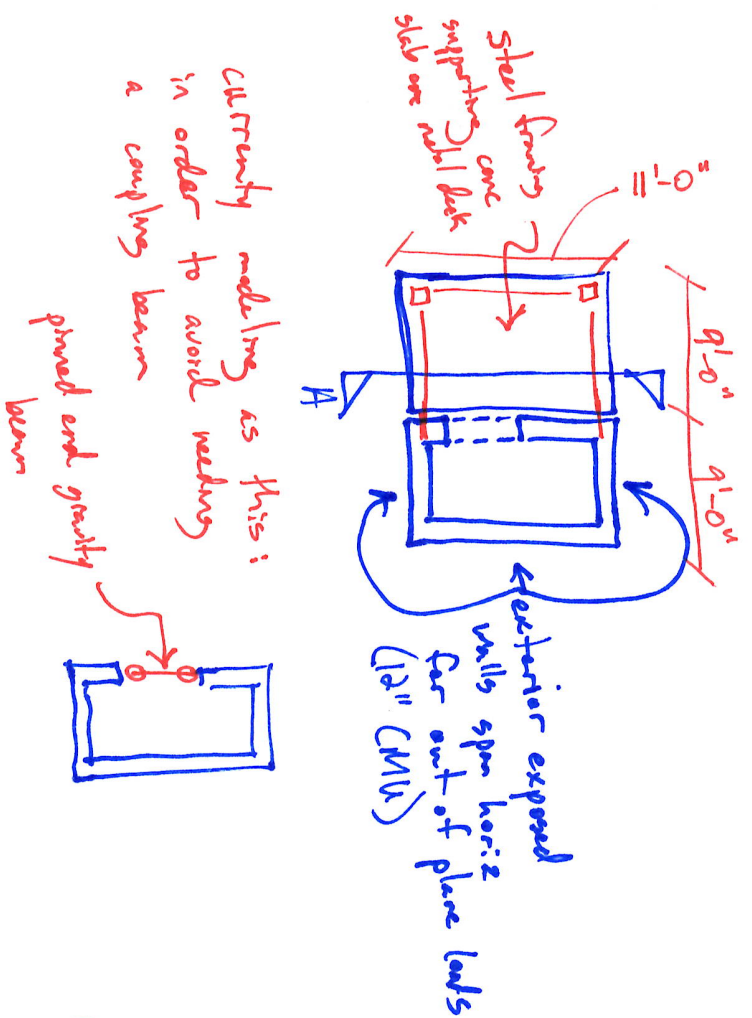 steel framing
supporting conc
slab on metal deck
11'-0"
9'-0"
9'-0"
A
exterior exposed
walls span horiz
for out of plane loads
(12" CMU)
currently modeling as this:
in order to avoid needing
a coupling beam
pinned end gravity
beam